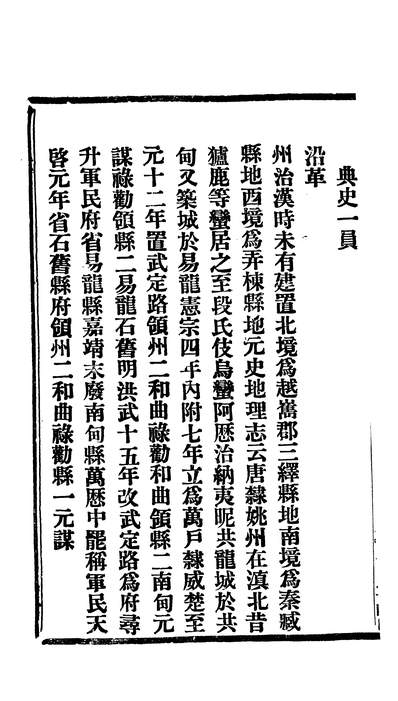 典史一員
沿革
州治漢時未有建置北境爲越嶲郡三絳縣地南境爲秦臧
縣地西境爲弄棟縣地元史地理志云唐隸姚州在滇北昔
獹鹿等蠻居之至段氏伎烏蠻阿歷治納夷昵共龍城於共
甸又築城於易龍憲宗四年內附七年立爲萬戶隸威楚至
元十二年置武定路領州二和曲祿勸和曲領縣二南甸元
謀祿勸領縣二易龍石舊明洪武十五年改武定路爲府尋
升軍民府省易龍縣嘉靖末廢南甸縣萬歷中罷稱軍民天
啓元年省石舊縣府領州二和曲祿勸縣一元謀